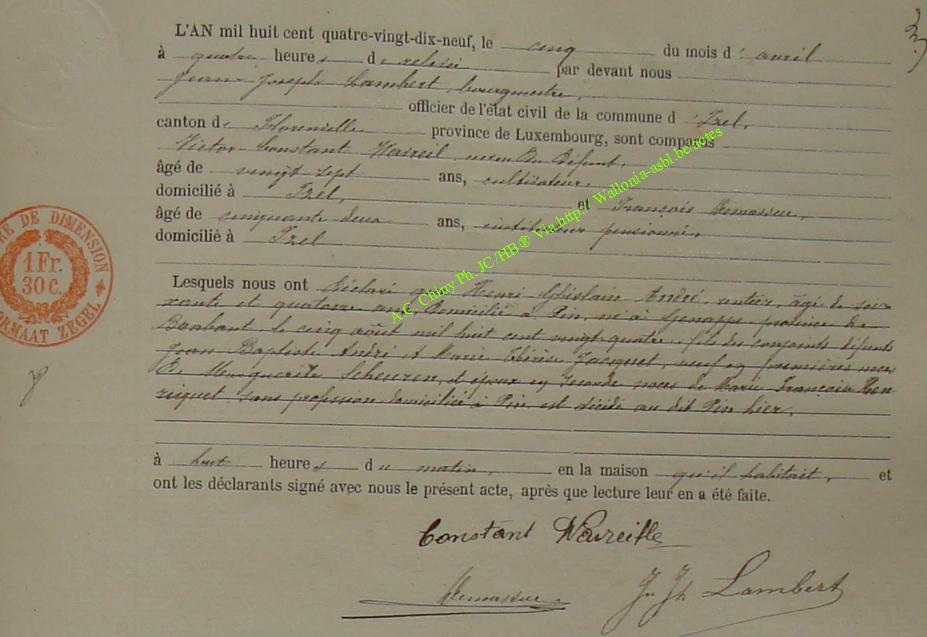 L'AN mil huit cent quatre-vingt-dix-neuf, le cinq du mois d'avril
à quatre heures de relevée par devant nous
Jean Joseph Lambert, bourgmestre,
officier de l'état civil de la commune d'Izel,
canton de Florenville province de Luxembourg, sont comparus
Victor Constant neveu du défunt,
âgé de vingt sept ans, cultivateur,
domicilié à Izel, et François
âgé de cinquante deux ans, instituteur pensionné,
domicilié à Izel
Lesquels nous ont déclaré que Henri Ghislain André, rentier, âgé de soi-
xante et quatorze ans domicilié à Pin, né à Genappe province de
Brabant, le cinq août mil huit cent vingt quatre, fils des conjoints défunts
Jean Baptiste André et Marie Thérèse Jacquet, veuf en premières noces
de Marguerite Scheuren, et époux en seconde noces de Marie Françoise Hen
riquet, sans profession domiciliée à Pin, est décédé au dit Pin hier,
à huit heures du matin, en la maison qu'il habitait, et
ont les déclarants signé avec nous le présent acte, après que lecture leur en a été faite.
Constant
Jn Jh Lambert
A.C. Chiny Ph. JC/HB® Via http:// Wallonia-asbl.be/actes
DE DIMENSION
1 Fr.
30 C.
FORMAAT ZEGEL